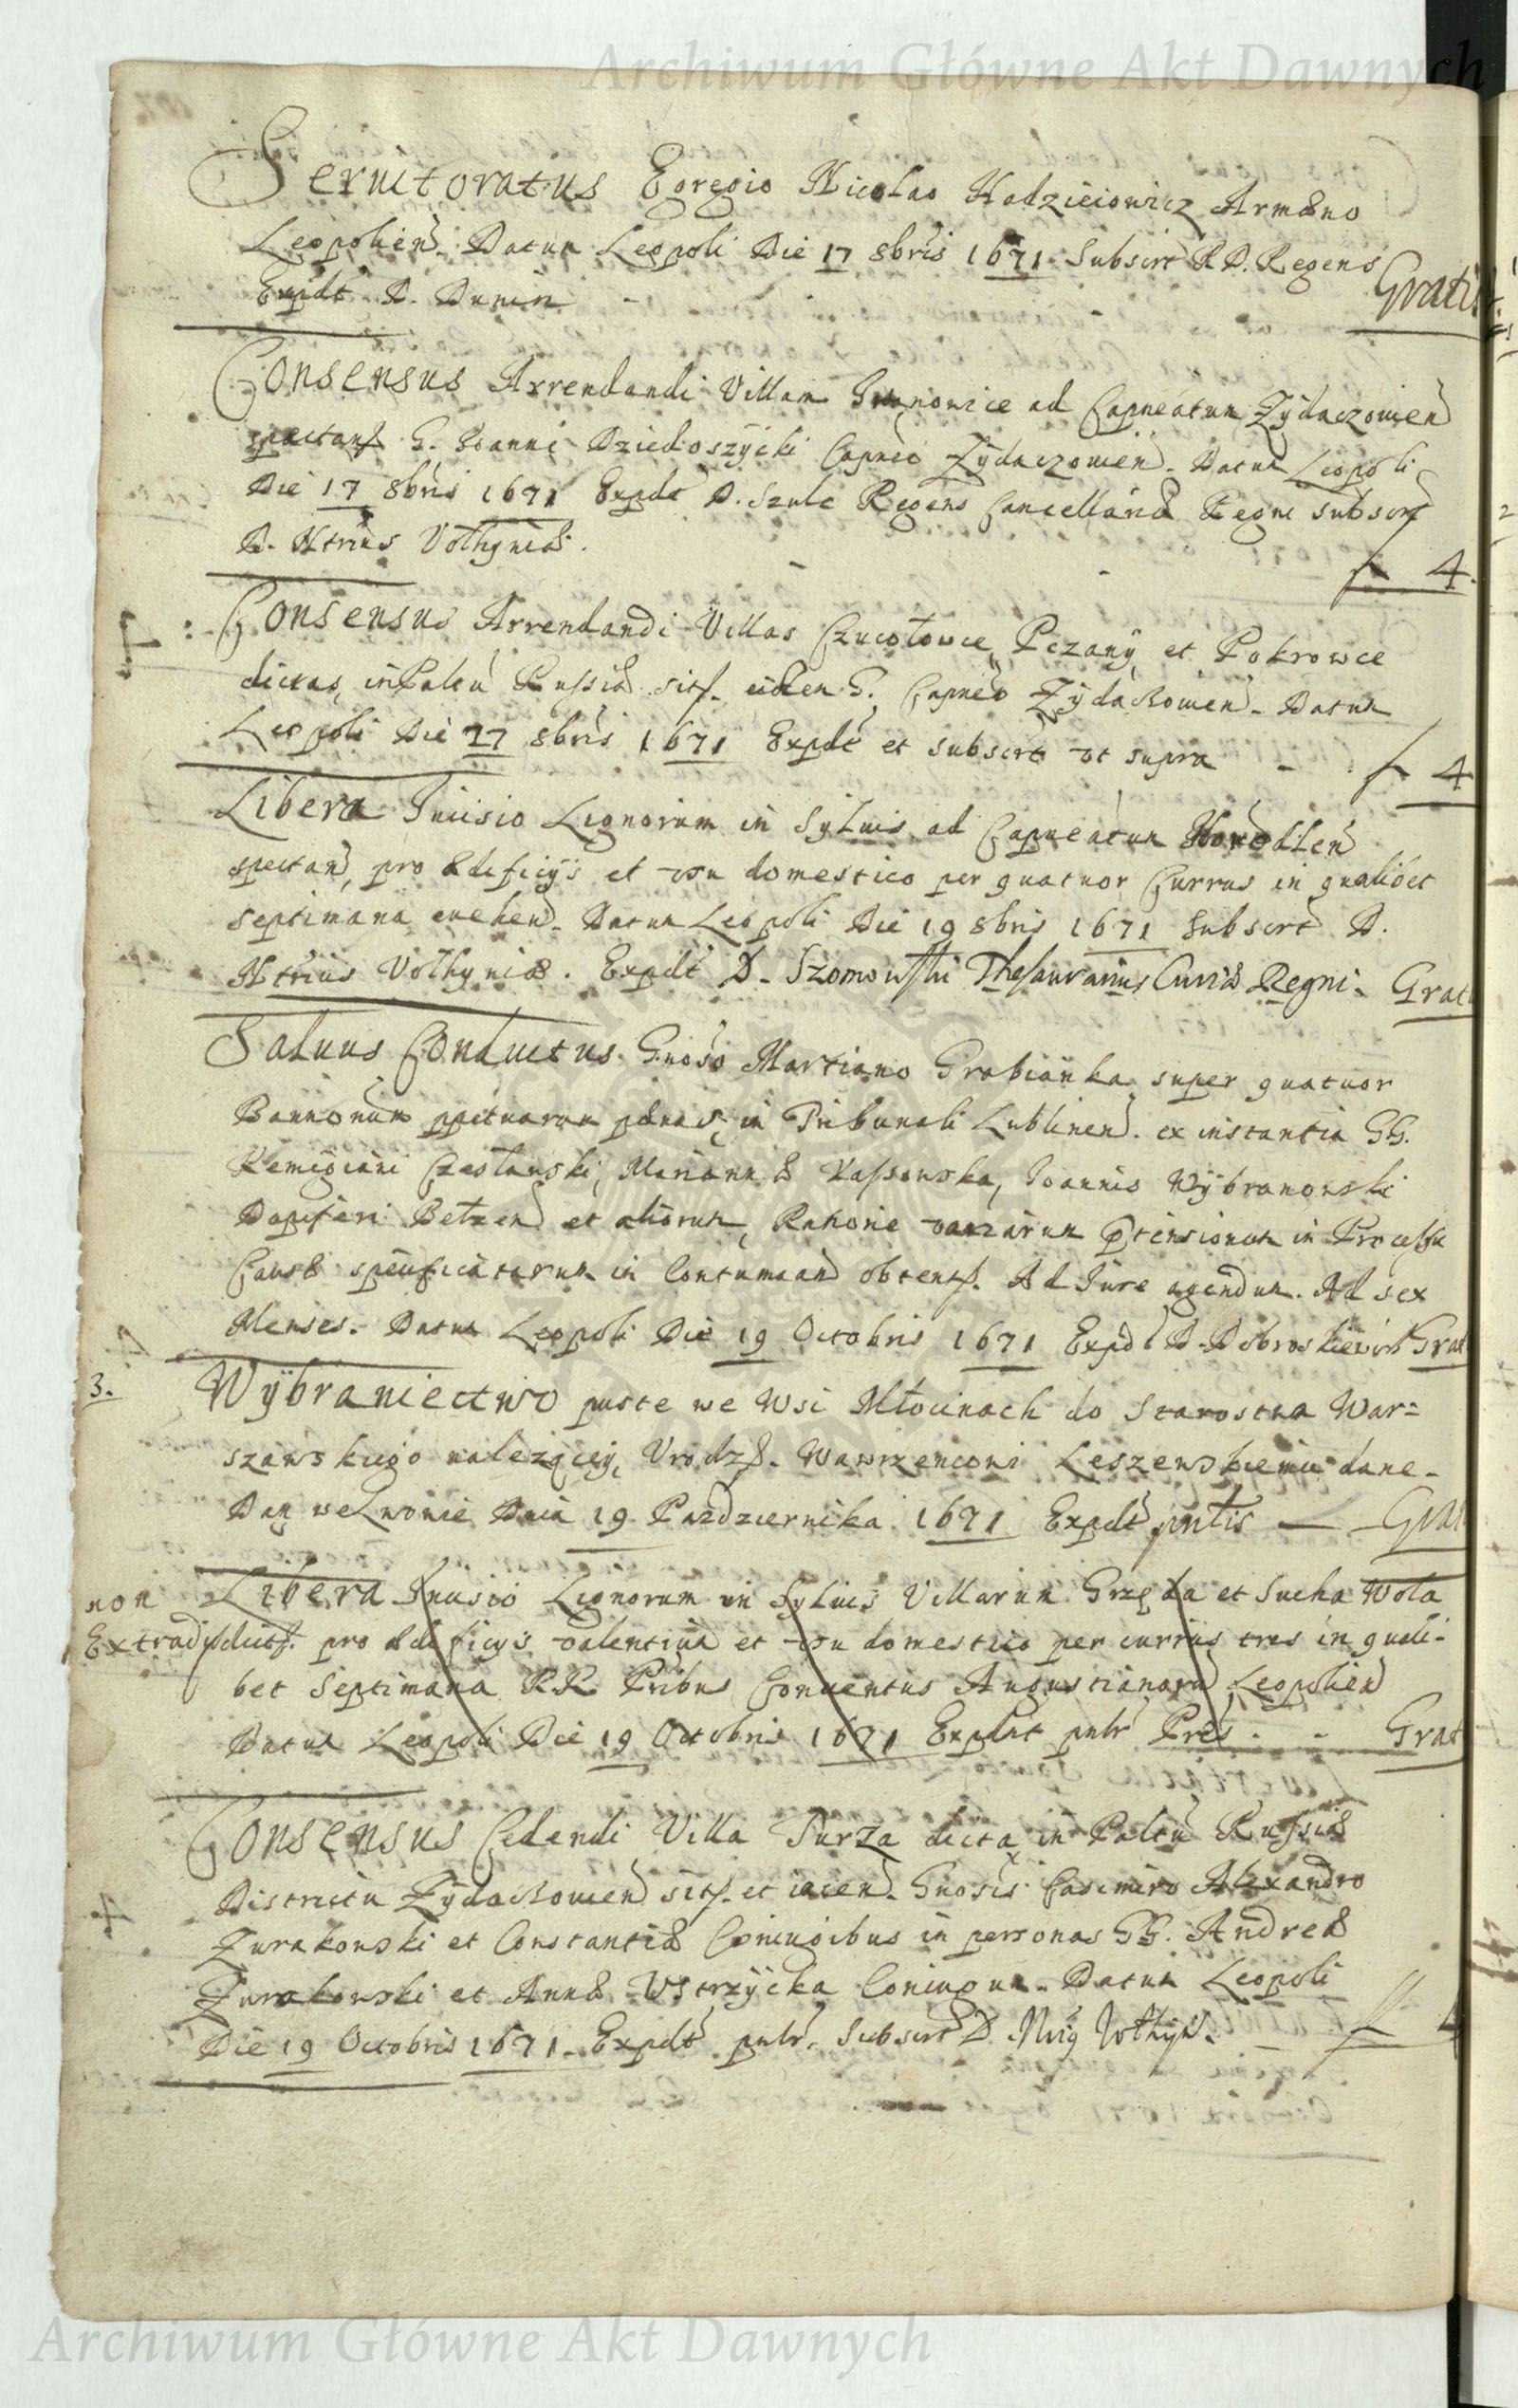 Archiwum Główne Akt Dawnych
Seruitoratus Egregio Nicolao Hadzieiowicz Armeno
Leopolien. Datum Leopoli Die 17 8bris 1671 Subscrt R D. Regens
Expdt D. Dunin - Gratis
Consensus Arrendandi Villam ad Capneatum Zydaczowien
spectan G. Joanni Dziedoszycki Capneo Zydaczowien. Datum Leopoli
Die 17 8bris 1671 Expdt D. Szulc Regens Cancellariæ Regni subscrt
D. Ntrius Volhyniæ. 4.
Consensus Arrendandi Villas Czucołowce, Pczany et Pokrowce
dictas, in Paltu Russiæ sit. eidem G. Capneo Zydaczowien. Datum
Leopoli Die 17 8bris 1671 Expdt et subscrt vt supra - 4
Libera Incisio Lignorum in Syluis ad Capneatum Horodlen
spectan, pro ædificijs et vsu domestico per quatuor Currus in qualibet
septimana euehen. Datum Leopoli Die 19 8bris 1671 Subscrt D.
Ntrius Volhyniæ. Expdt D. Szomowski Thesaurarius Curiæ Regni. Grat
Saluus Conductus Gnoso Martiano Grabianka super quatuor
Bannorum ppetuarum pænas, in Tribunali Lublinen. ex instantia GG.
Remigiani Czesłauski, Mariannæ Kassowska, Joannis Wybranowski
Dapiferi Belzen et aliorum, Ratione variarum prtensionum in Processu
Causæ specificatarum in Contumaciam obtent. Ad Jure agendum. Ad sex
Menses. Datum Leopoli Die 19 Octobris 1671 Expdt D. Grat
3. Wybraniectwo puste we Wsi Młocinach do Starostwa War=
szawskiego należącey, Vrodz. Wawrzencowi Leszewskiemu dane.
Dan we Lwowie Dnia 19 Pazdziernika 1671 Expdt pntis — Grat
non Libera Incisio Lignorum in Syluis Villarum Grzęda et Sucha Wola
Extradi dict. pro ædificijs et vsu domestico per currus tres in quali-
bet Septimana RR Pribus Conuentus Augustianoru Leopolien
Datum Leopoli Die 19 Octobris 1671 Expdt Pres. - Grat
Consensus Cedendi Villa Turza dicta in Paltu Russiæ
Districtu Zydaczowien sit. et iacen. Gnosis Casimiro Alexandro
Zurakowski et Constantiæ Coniugibus in personas GG. Andreæ
Zurakowski et Annæ Wstrzycka Coniugum. Datum Leopoli
Die 19 Octobris 1671. Expdt Subscrt D. - 4
Archiwum Główne Akt Dawnych